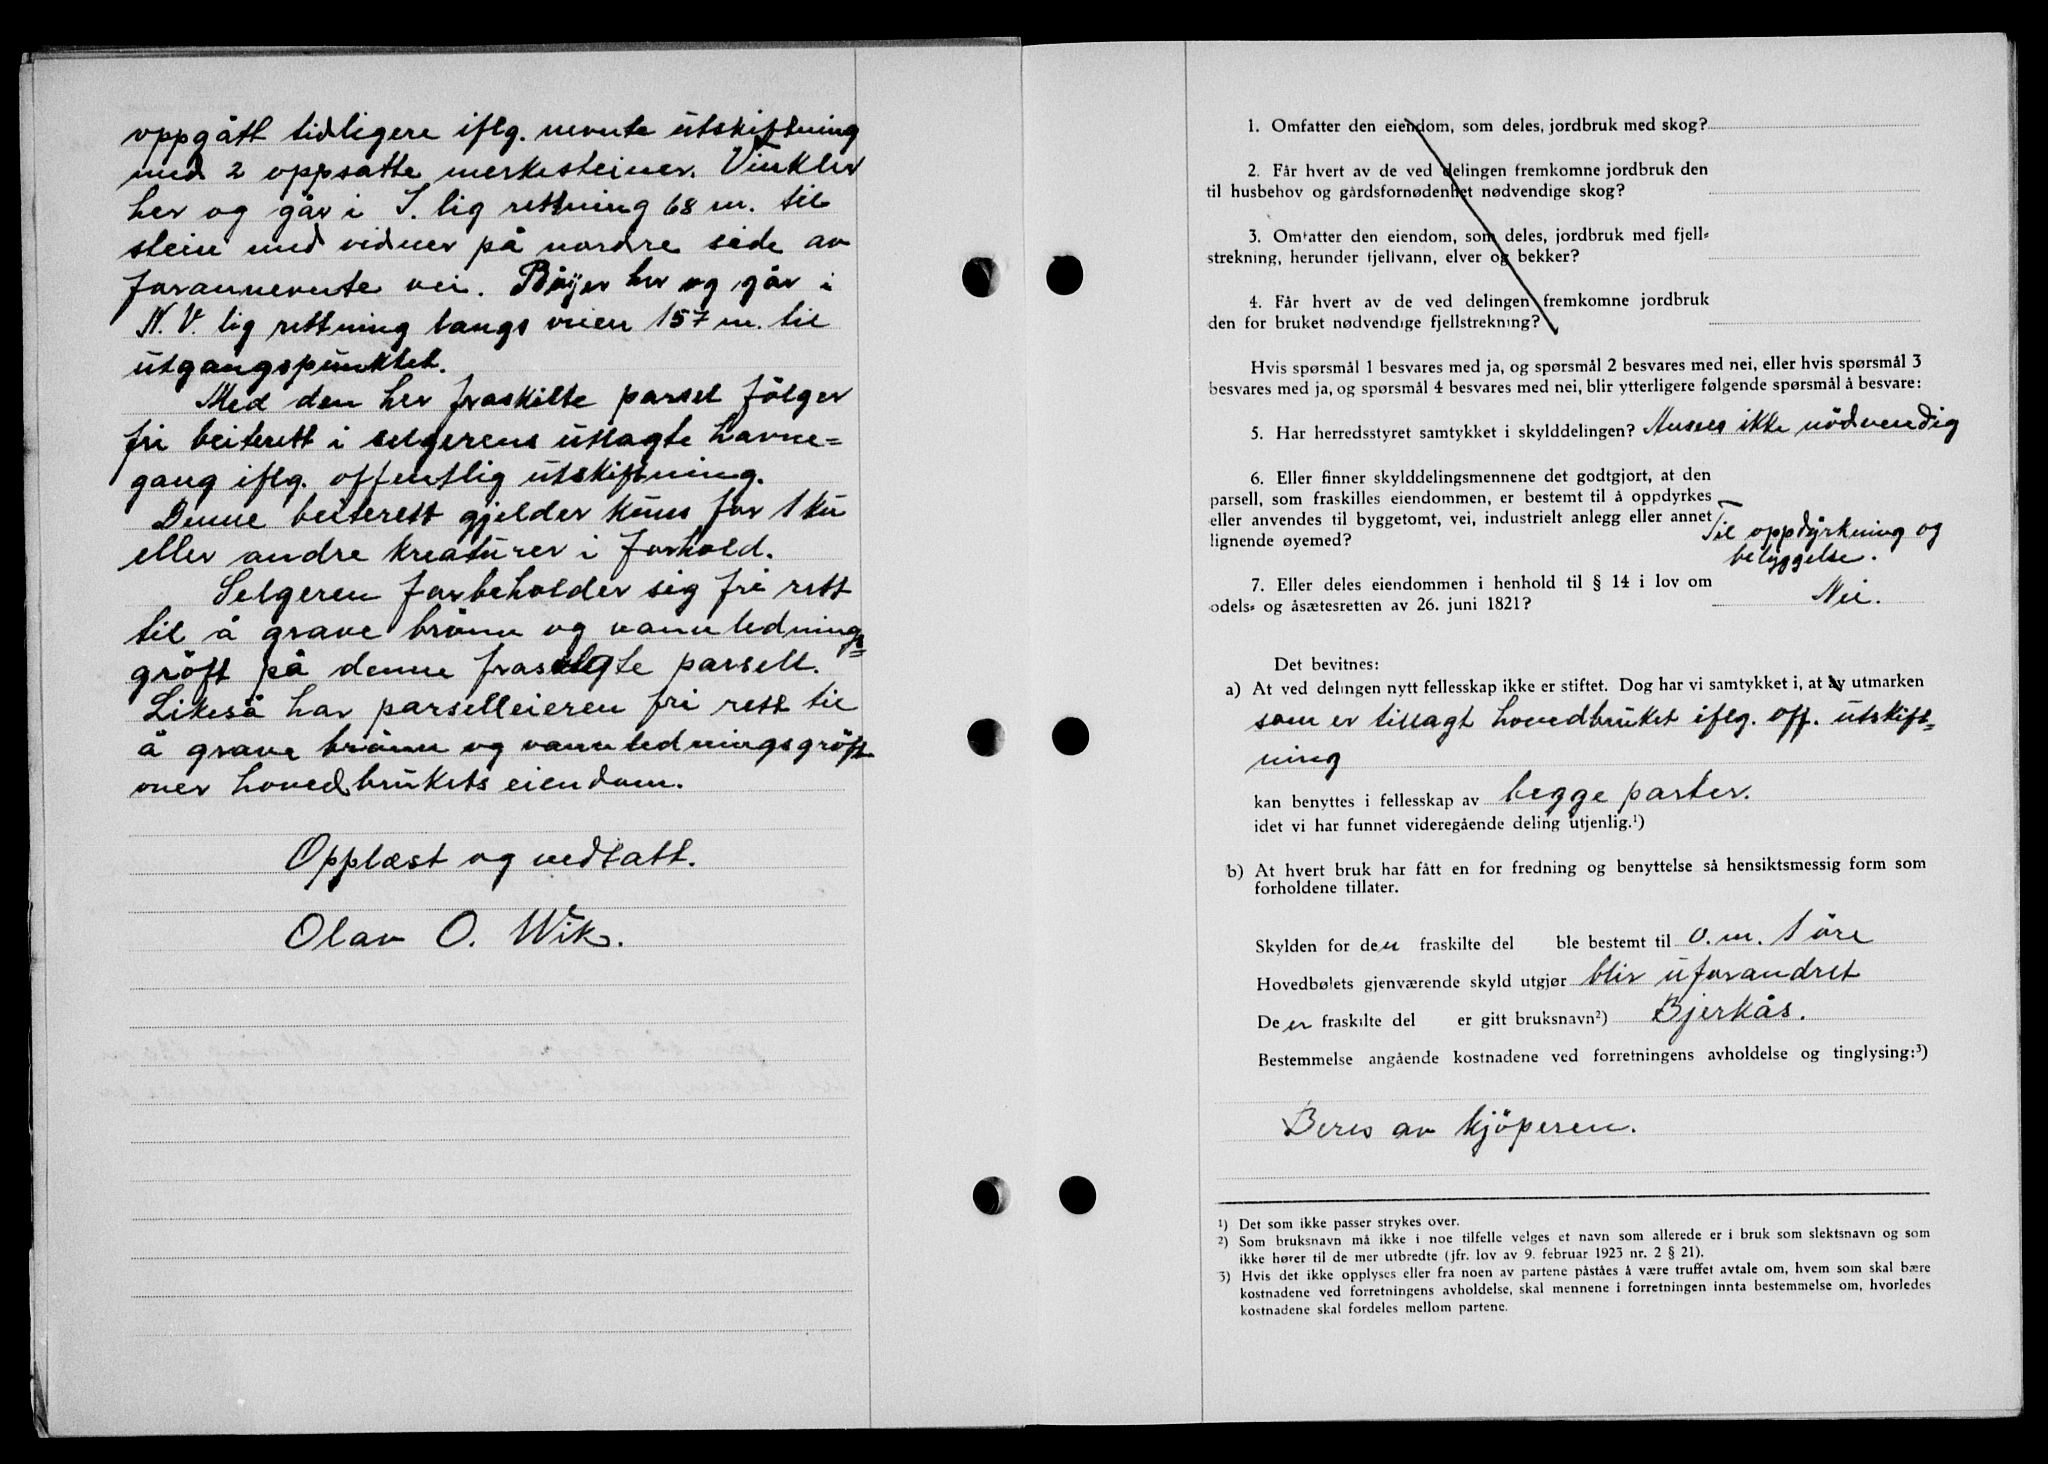 oppgått tidligere iflg. nevnte utskiftning
med 2 oppsatte merkesteiner. Vinkler
her og går i S. lig rettning 68 m. til
stein med vidner på nordre side av
forannevnte vei. Böyer her og går i
N. V. lig rettning langs veien 157 m. til
utgangspunktet.
Med den her fraskilte parsel fölger
fri beiterett i selgerens utlagte havne=
gang iflg. offentlig utskiftning.
Denne beiterett gjelder kuns for 1 ku
eller andre kreaturer i forhold.
Selgeren forbeholder sig fri rett
til å grave brönn og vannlednings=
gröft på denne frasolgte parsell.
Likeså har parselleieren fri rett til
å grave brönn og vannledningsgröft
over hovedbrukets eiendom.
Opplæst og vedtatt.
Olav O. Wik.
1. Omfatter den eiendom, som deles, jordbruk med skog?
2. Får hvert av de ved delingen fremkomne jordbruk den
til husbehov og gårdsfornødenhet nødvendige skog?
3. Omfatter den eiendom, som deles, jordbruk med fjell-
strekning, herunder fjellvann, elver og bekker?
4. Får hvert av de ved delingen fremkomne jordbruk
den for bruket nødvendige fjellstrekning?
Hvis spørsmål 1 besvares med ja, og spørsmål 2 besvares med nei, eller hvis spørsmål 3
besvares med ja, og spørsmål 4 besvares med nei, blir ytterligere følgende spørsmål å besvare:
5. Har herredsstyret samtykket i skylddelingen? Ansees ikke nödvendig
6. Eller finner skylddelingsmennene det godtgjort, at den
parsell, som fraskilles eiendommen, er bestemt til å oppdyrkes
eller anvendes til byggetomt, vei, industrielt anlegg eller annet
lignende øyemed? Til oppdyrkning og
bebyggelse.
7. Eller deles eiendommen i henhold til § 14 i lov om
odels- og åsætesretten av 26. juni 1821? Nei.
Det bevitnes:
a) At ved delingen nytt fellesskap ikke er stiftet. Dog har vi samtykket i, at av utmarken
som er tillagt hovedbruket iflg. off. utskift=
ning
kan benyttes i fellesskap av begge parter.
idet vi har funnet videregående deling utjenlig.¹)
b) At hvert bruk har fått en for fredning og benyttelse så hensiktsmessig form som
forholdene tillater.
Skylden for den fraskilte del ble bestemt til 0. m. 1 öre
Hovedbølets gjenværende skyld utgjør blir uforandret
Den fraskilte del er gitt bruksnavn²) Bjerkås.
Bestemmelse angående kostnadene ved forretningens avholdelse og tinglysing:³)
Beres av kjöperen.
¹) Det som ikke passer strykes over.
²) Som bruksnavn må ikke i noe tilfelle velges et navn som allerede er i bruk som slektsnavn og som
ikke hører til de mer utbredte (jfr. lov av 9. februar 1923 nr. 2 § 21).
³) Hvis det ikke opplyses eller fra noen av partene påståes å være truffet avtale om, hvem som skal bære
kostnadene ved forretningens avholdelse, skal mennene i forretningen innta bestemmelse om, hvorledes
kostnadene skal fordeles mellom partene.